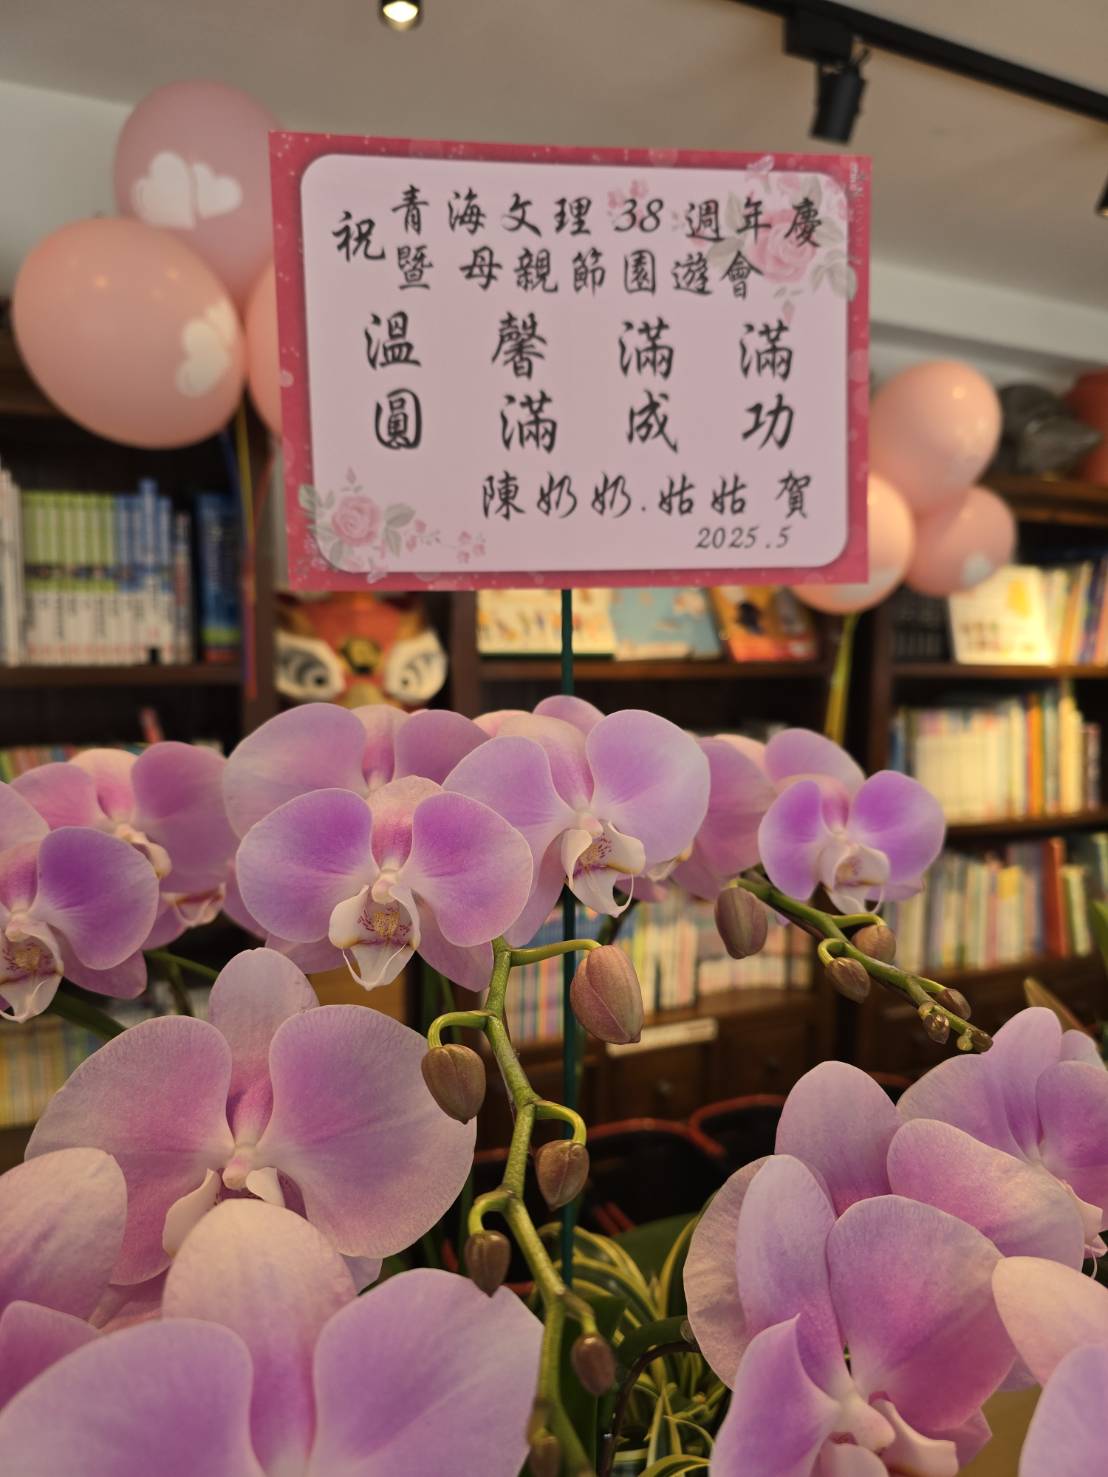 祝青海文理38週年慶
暨母親節園遊會
溫馨滿滿
圓滿成功
陳奶奶.姑姑 賀
2025.5